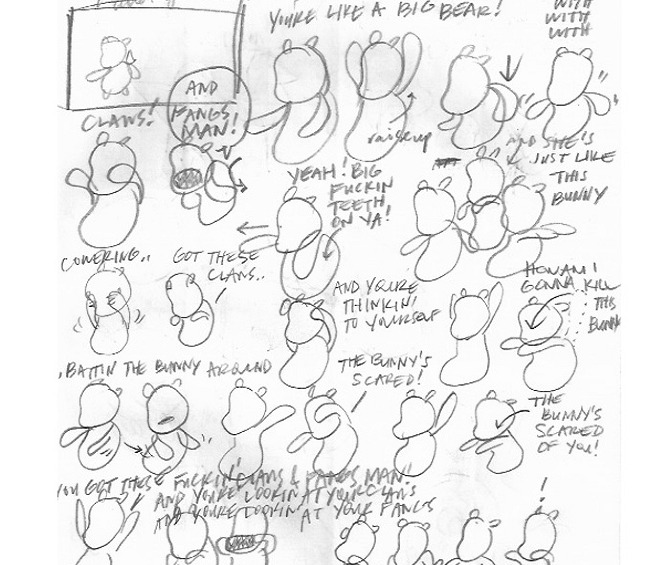 YOU'RE LIKE A BIG BEAR!
WITH
WITH
WITH
AND
FANGS
MAN!
CLAWS!
raise up
AND SHE'S
JUST LIKE
THIS
BUNNY
YEAH! BIG
FUCKIN
TEETH
ON YA!
COWERING..
GOT THESE
CLAWS..
AND YOU'RE
THINKIN'
TO YOURSELF
HOW AM I
GONNA KILL
THIS
BUNNY
BATTIN THE BUNNY AROUND
THE BUNNY'S
SCARED!
THE
BUNNY'S
SCARED
OF YOU!
YOU GOT THESE FUCKIN' CLAWS & FANGS MAN!
AND YOU'RE LOOKIN AT YOUR CLAWS
AND YOU'RE LOOKIN' AT YOUR FANGS
!